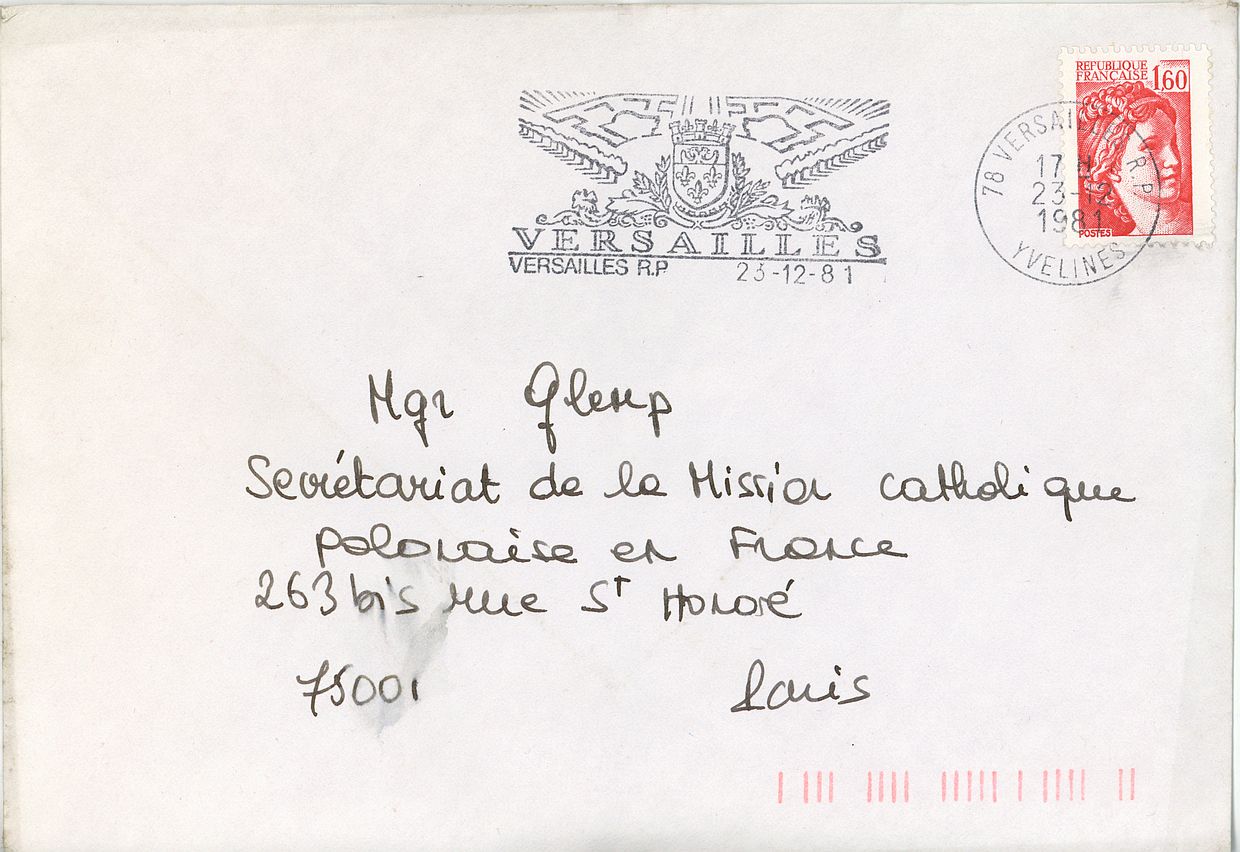 REPUBLIQUE
FRANÇAISE 1,60
POSTES
78 VERSAILLES R.P
17 H
23-12
1981
YVELINES
VERSAILLES
VERSAILLES R.P 23-12-81
Mgr Glemp
Secrétariat de la Mission catholique
polonaise en France
263 bis rue St Honoré
75001 Paris